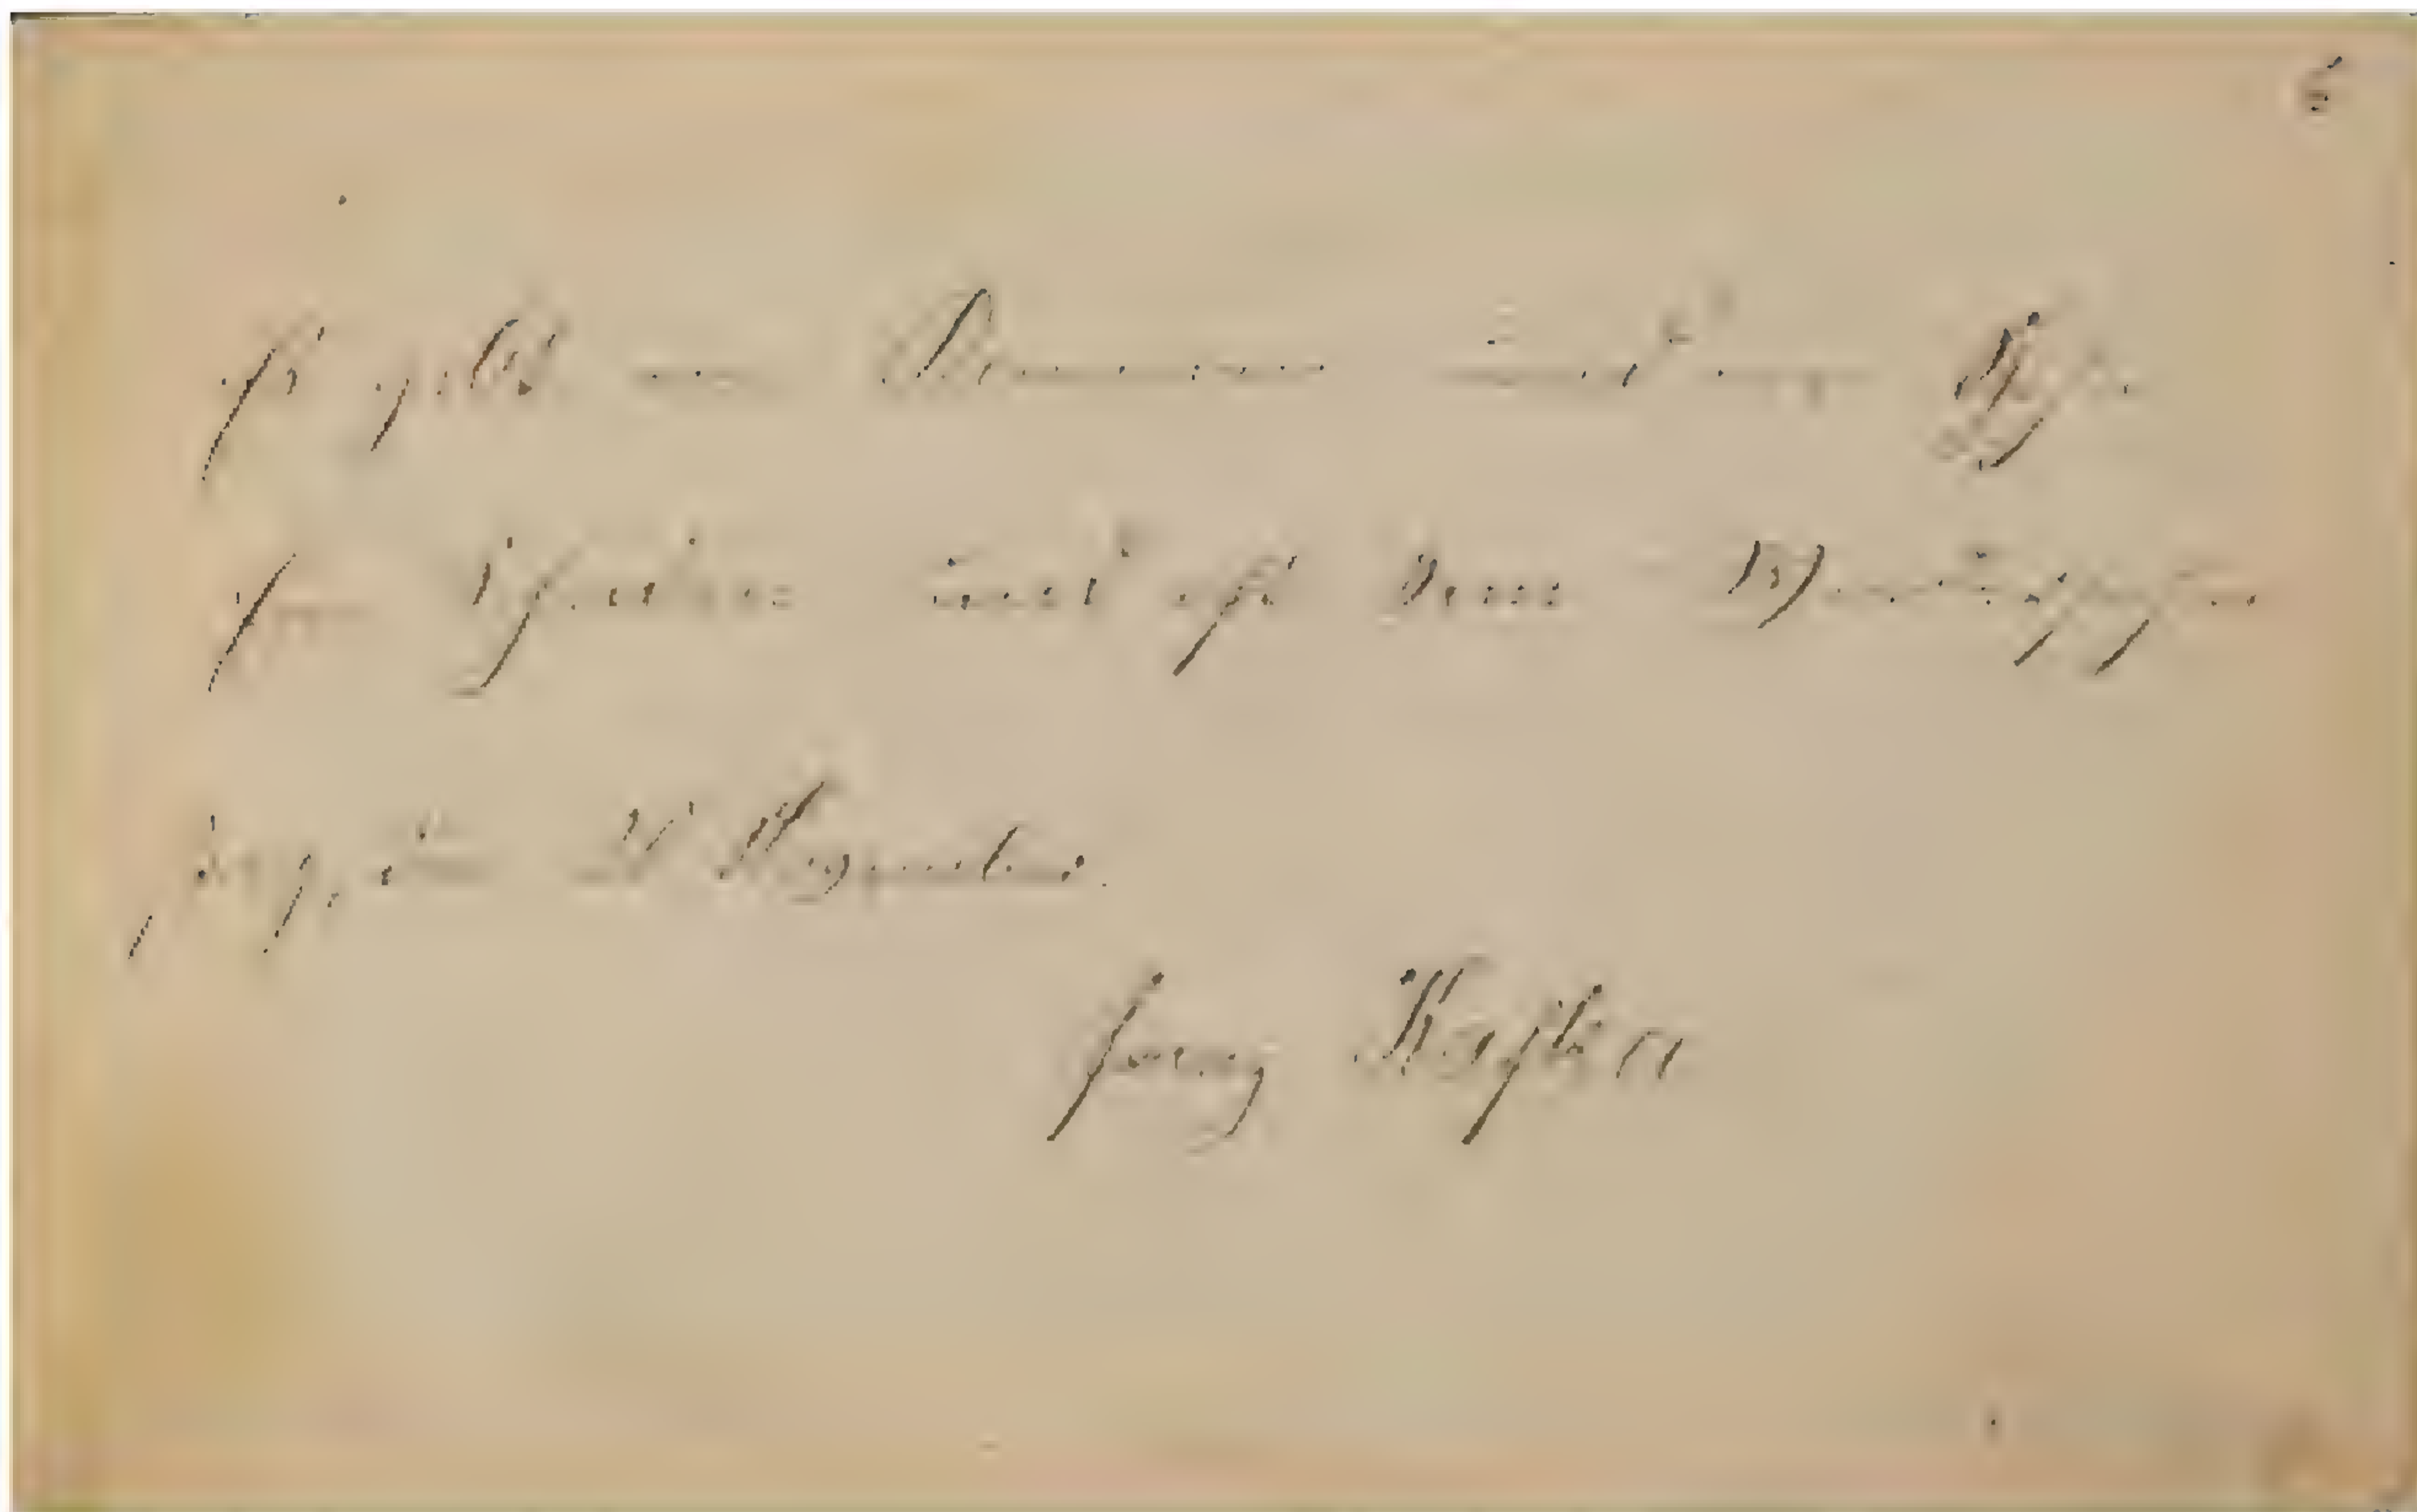 Es gibt ein Kommen und ein Gehn
Ein Scheiden und oft kein Wiedersehn
Prag, den November.
Franz Kafka